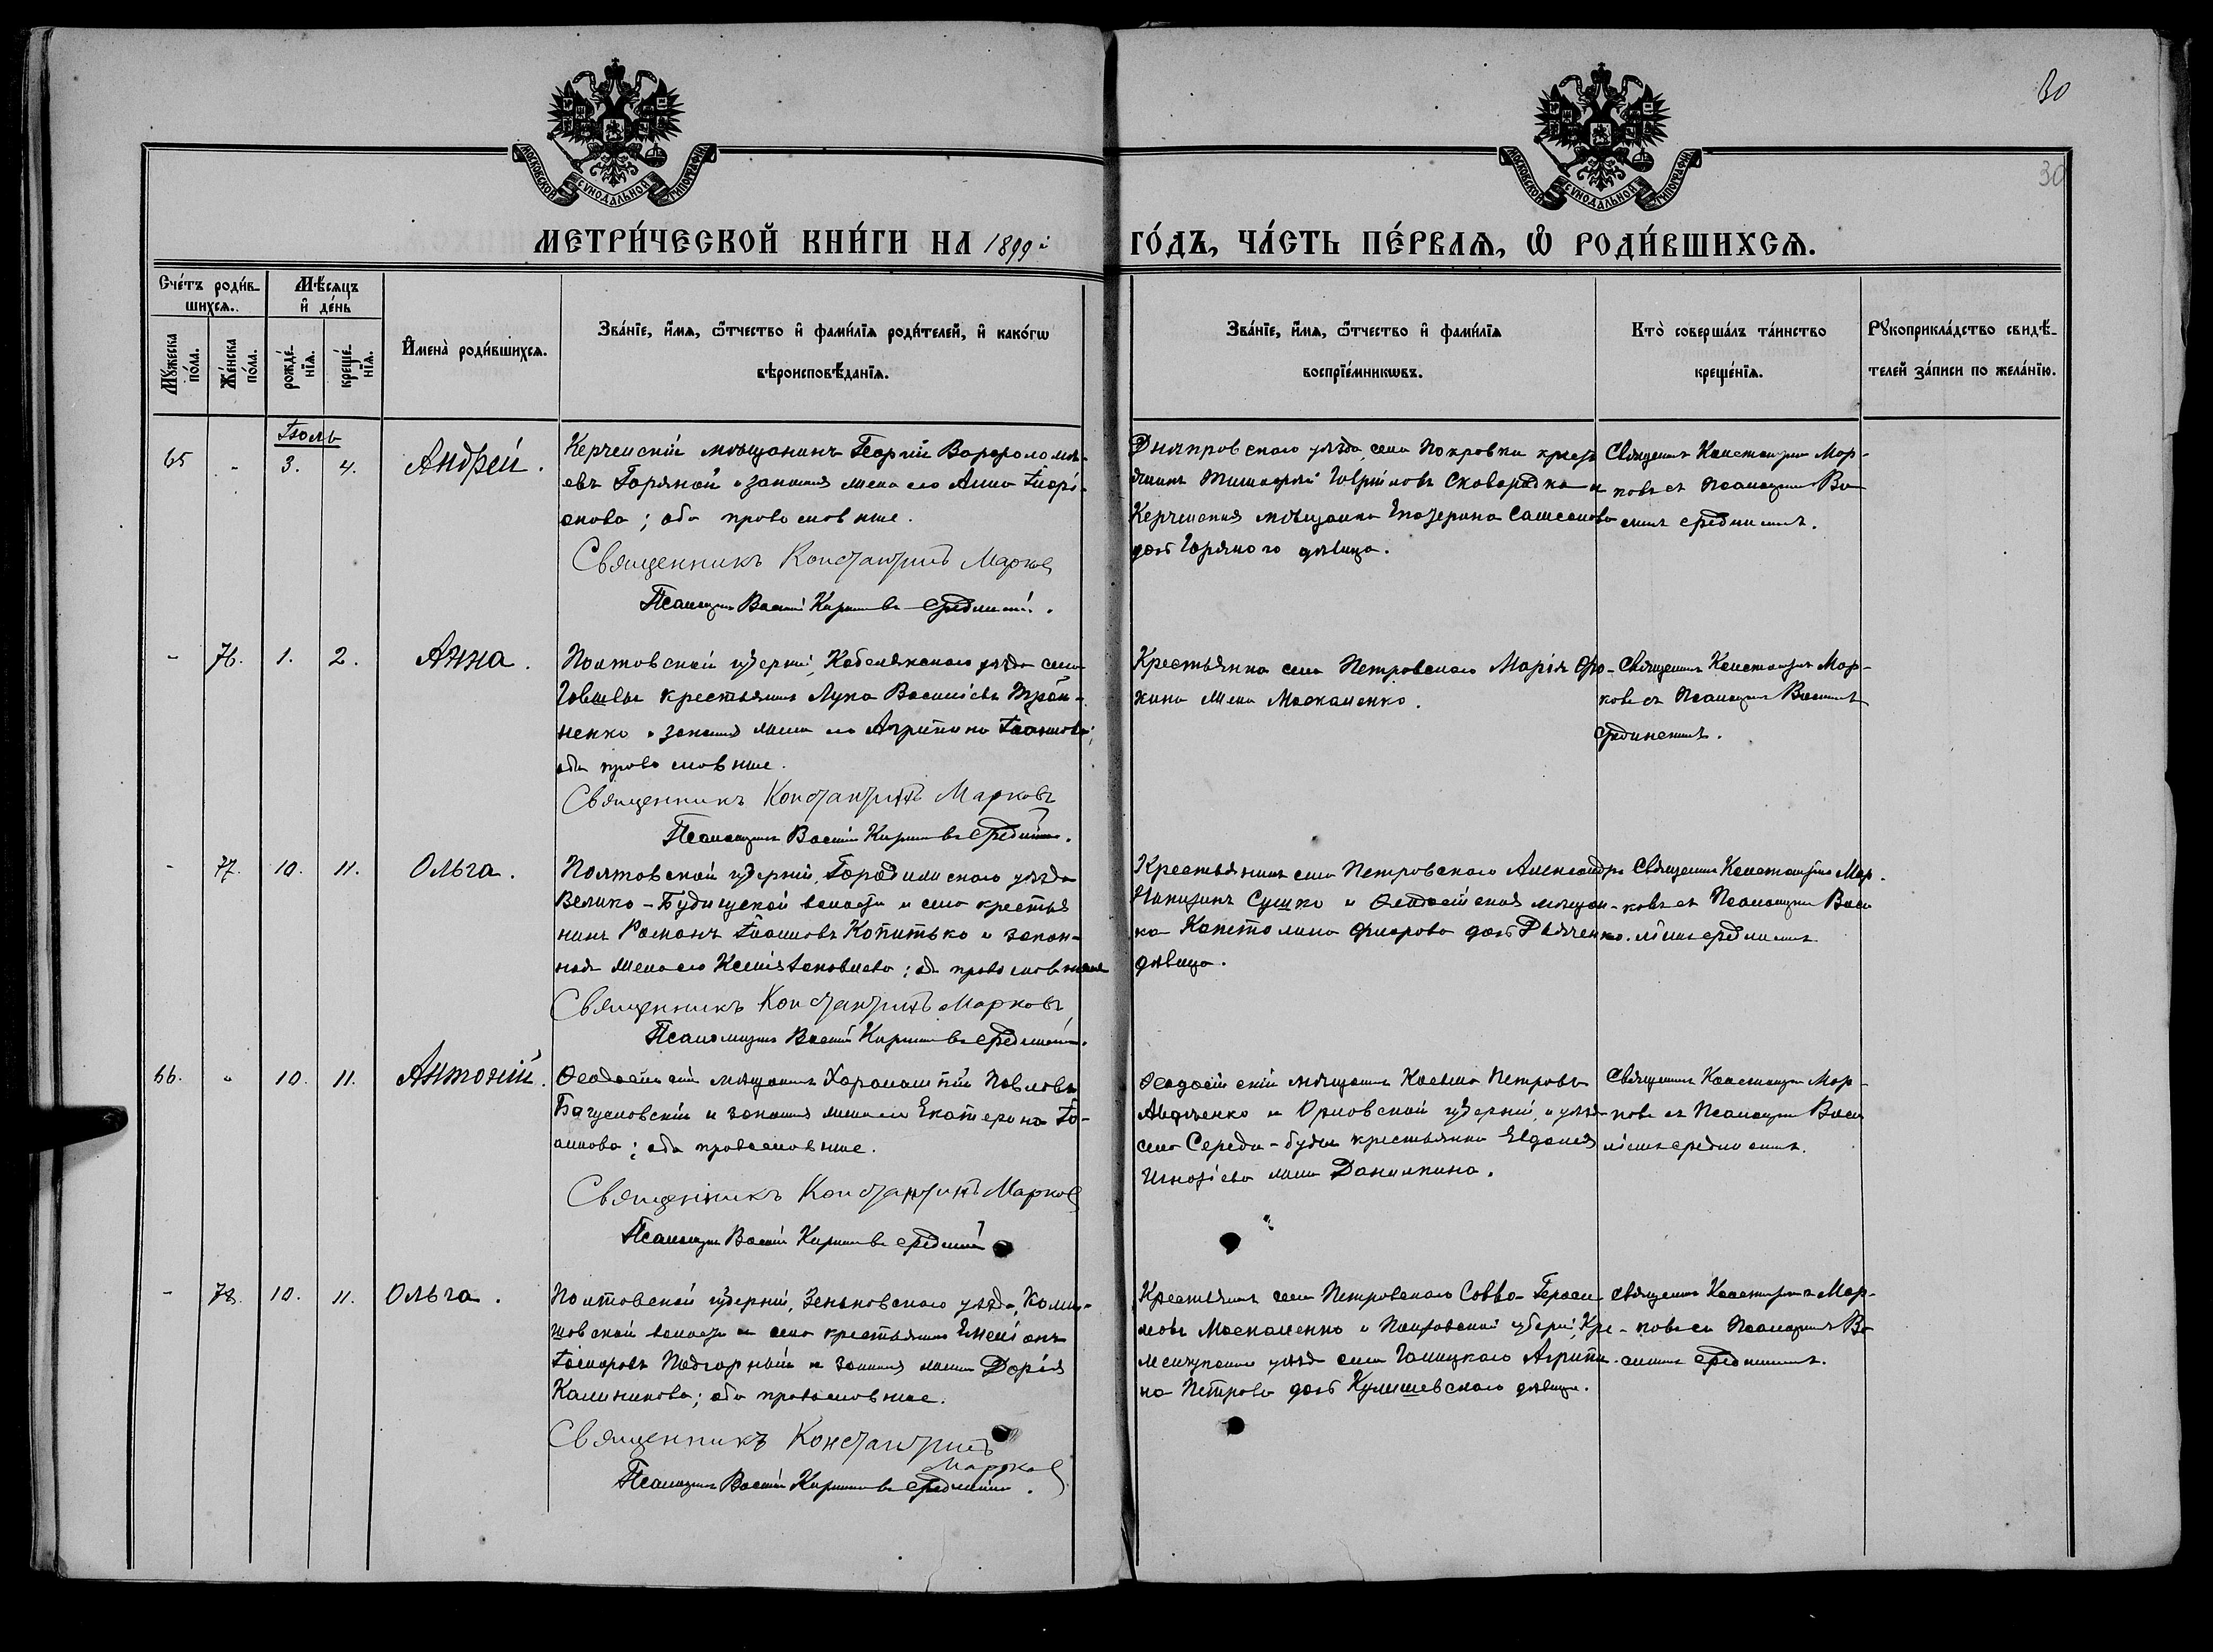 30
30
МОСКОВСКОЙ СѴНОДАЛЬНОЙ ТИПОГРАФІИ
МОСКОВСКОЙ СѴНОДАЛЬНОЙ ТИПОГРАФІИ
МЕТРИ́ЧЕСКОЙ КНИ́ГИ НА 1899й
ГО́ДЪ, ЧА́СТЬ ПЕ́РВАѦ, Ѡ҆ РОДИ́ВШИХСѦ.
Сче́тъ роди́в-
шихсѧ.
Мꙋ́жеска по́ла.
Же́нска по́ла.
Мѣ́сѧцъ
и҆ де́нь
рожде́-нїѧ.
креще́-нїѧ.
И҆мена̀ роди́вшихсѧ.
Зва́нїе, и҆́мѧ, ѻ҆́тчество и҆ фами́лїѧ роди́телей, и҆ како́гѡ
вѣроисповѣ́данїѧ.
Зва́нїе, и҆́мѧ, ѻ҆́тчество и҆ фами́лїѧ
воспрїе́мникѡвъ.
Кто̀ соверша́лъ та́инство
креще́нїѧ.
Рꙋкоприкла́дство свидѣ́-
телей за́писи по жела́нїю.
Іюль
65 - 3. 4. Андрей.
Керченскій мѣщанинъ Георгій Варѳоломѣ-
евъ Горяной и законная жена его Анна
; оба православные.
Священникъ Константинъ Марковъ
Псаломщикъ Василій Средин
Днѣпровскаго уѣзда села Покровки кресть
янинъ Тимоѳей Гаврііловъ Сковородка и
Керченская мѣщанка Екатерина
дочь Горяного дѣвица.
Священникъ Константинъ Мар-
ковъ съ Псаломщик Ва
- 76. 1. 2. Анна.
Полтовской губерніи, Кобелякскаго уѣзда села
крестьянинъ Лука Василіевъ
ненко и законная жена его Агрипина Іоаннова;
оба православные.
Священникъ Константинъ Марковъ
Псаломщикъ Василій Средин
Крестьянка села Петровскаго Марія Ѳо-
кина жена Москаленко.
Священникъ Константинъ Мар-
ковъ съ Псаломщик Василіемъ
- 77. 10. 11. Ольга.
Полтовской губерніи, уѣзда
Велико-Будищской волости и села крестья
нинъ Романъ Іоанновъ Копитько и закон-
ная жена его Ксенія ; оба православные
Священникъ Константинъ Марковъ
Псаломщикъ Василій Средин
Крестьянинъ села Петровскаго Александръ
Никитинъ Сушко и Ѳеодосійская мѣщан-
ка Капетолина дочь Дяченко
дѣвица.
Священникъ Константинъ Мар-
ковъ съ Псаломщик Васи
66. " 10. 11. Антоній.
Ѳеодосійскій мѣщанинъ Харалампій Павловъ
Багуславскій и законная жена его Екатерина Іо-
аннова; оба православные.
Священникъ Константинъ Марковъ
Псаломщикъ Василій Средин
Ѳеодосійскій мѣщанинъ Косьма Петровъ
Авдѣенко и Орловской губерніи, и уѣзд
села Середа-Буды крестьянка Евдокія
Игнатіева жена Данилкина.
Священникъ Константинъ Мар-
ковъ съ Псаломщик Васи
- 78. 10. 11. Ольга.
Полтовской губерніи, Зеньковскаго уѣзда,
волости и села крестьянинъ Емеліанъ
Подгорный и законная жена Дарія
Калиникова; оба православные.
Священникъ Константинъ
Марковъ
Псаломщикъ Василій Средин
Крестьянинъ села Петровскаго Савва Гераси-
мовъ Москаленко и Полтовской губерніи, Кре-
менчугскаго уѣзда села Галицкаго Агрипи-
на Петрова дочь Кулишевскаго дѣвица.
Священникъ Константинъ Мар-
ковъ съ Псаломщик Ва